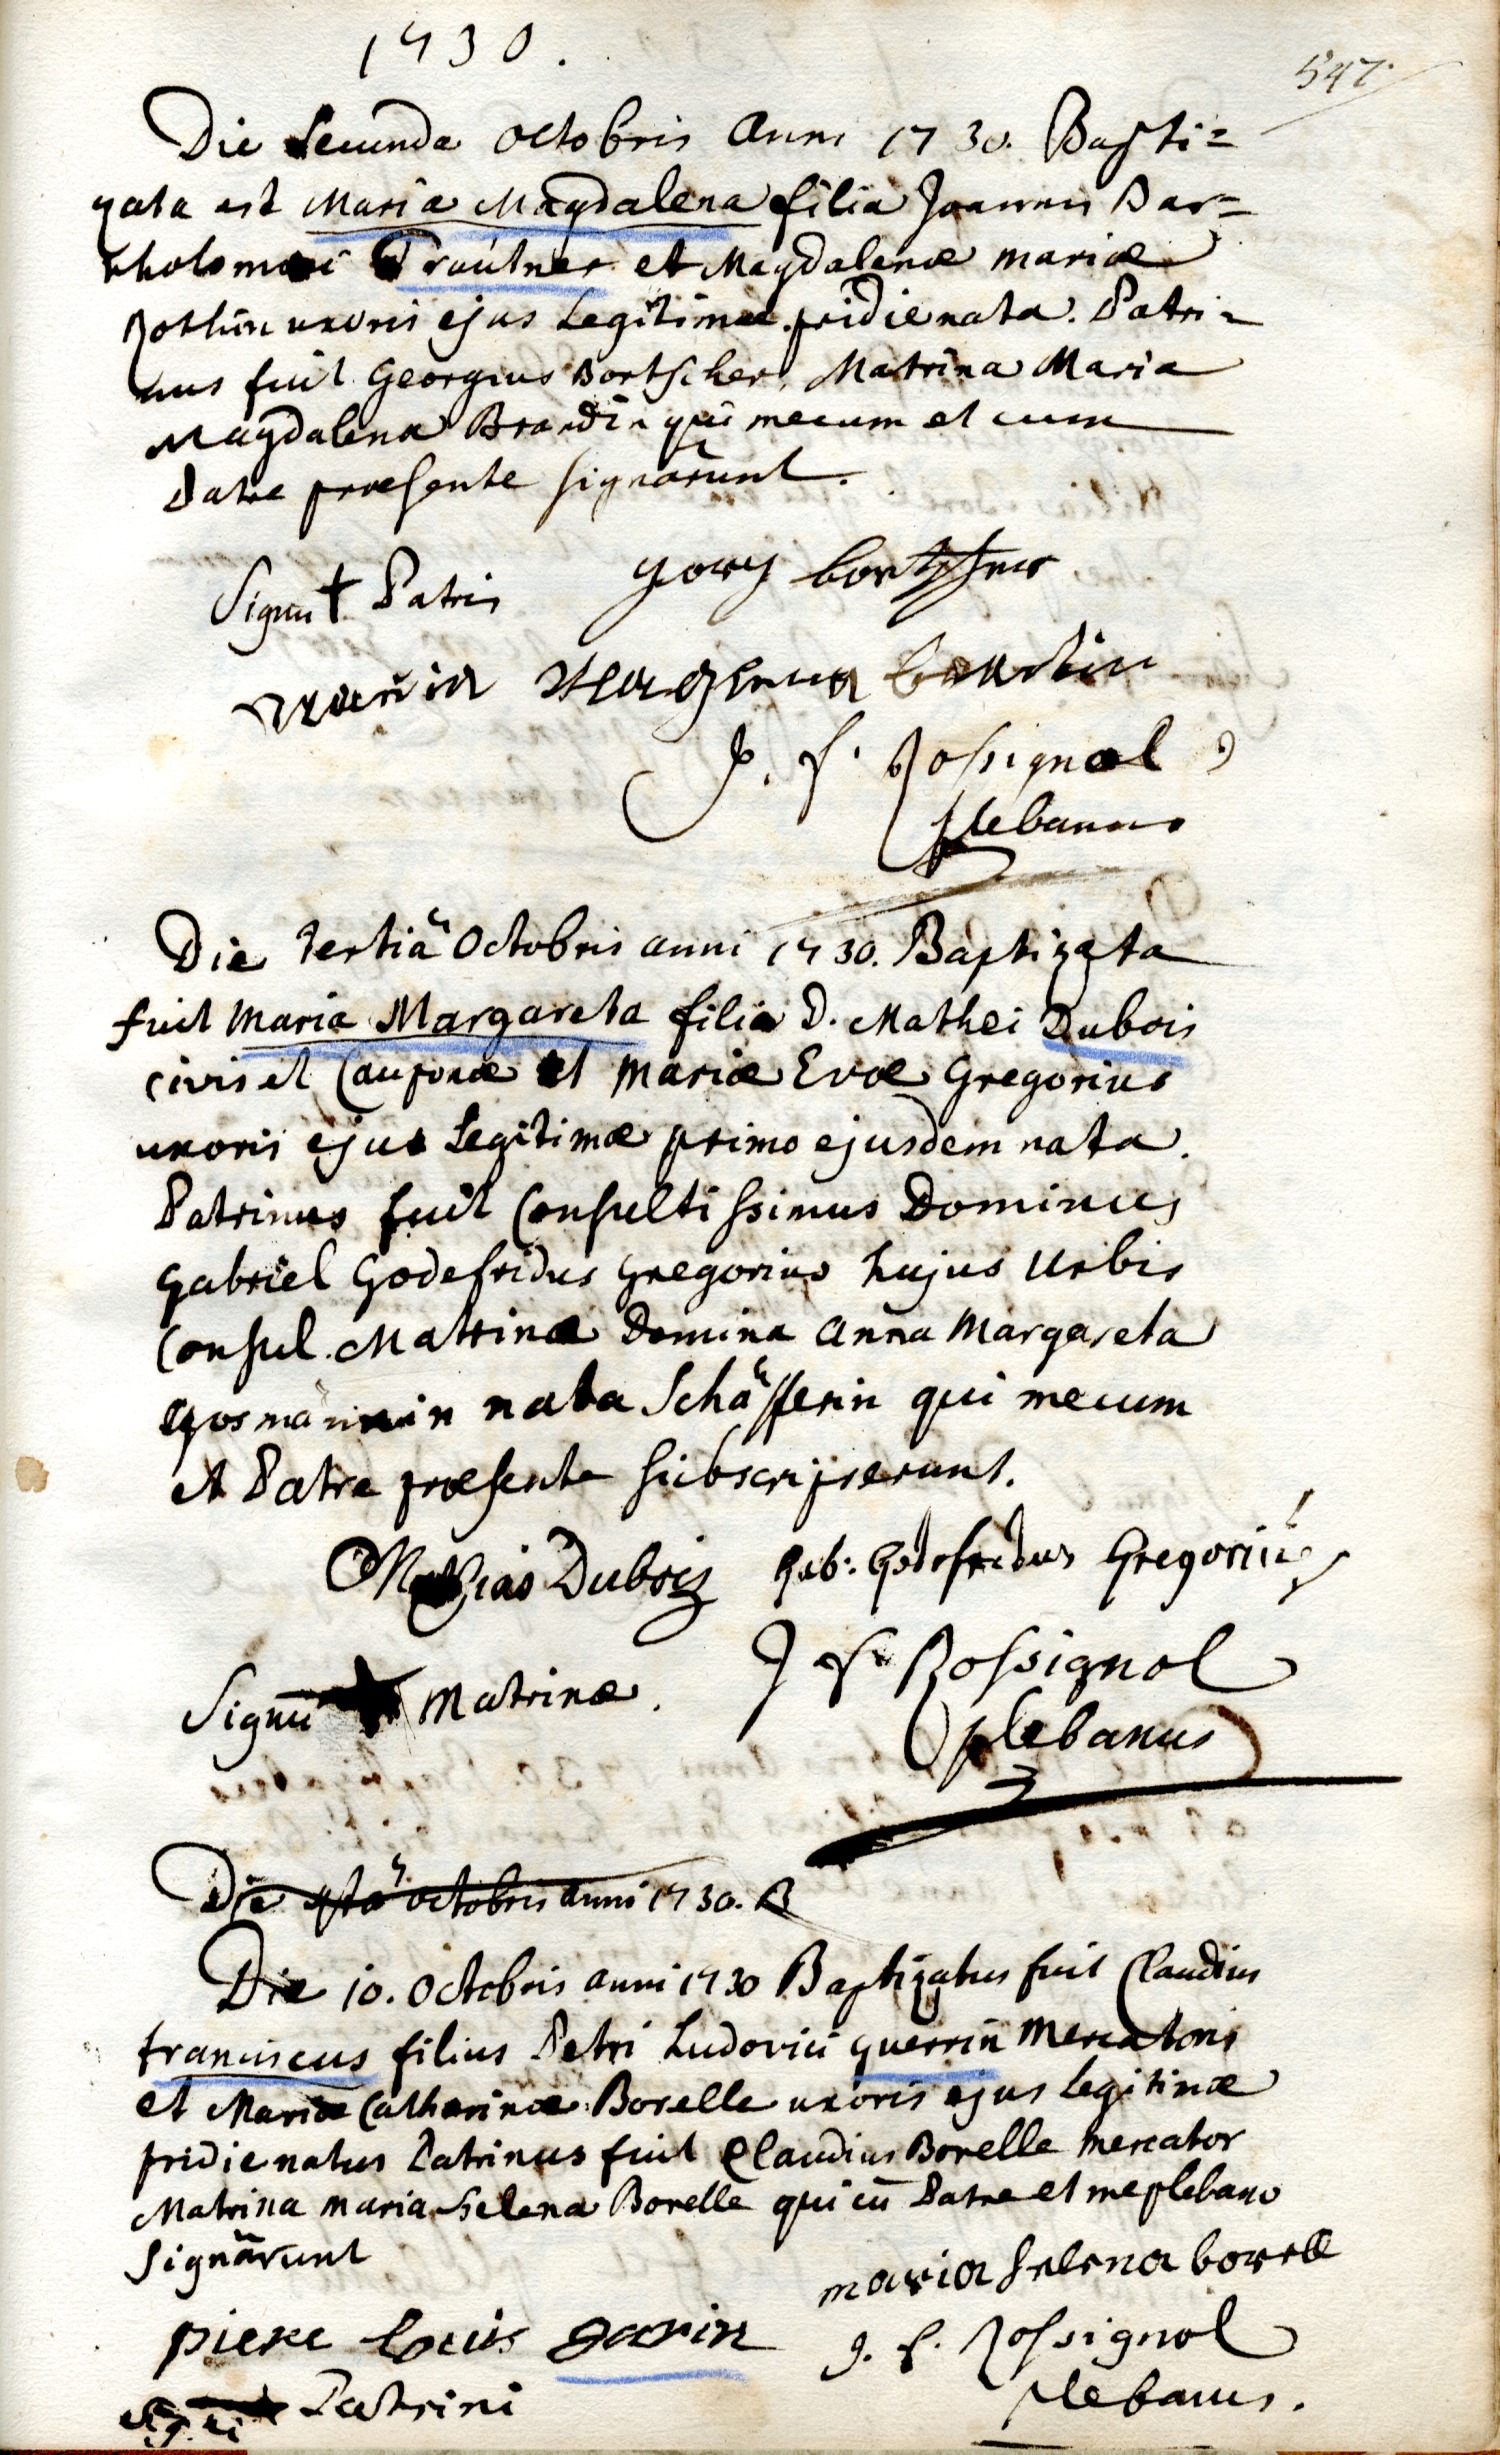 1730.
547.
Die Secunda Octobris Anni 1730. Bapti=
zata est Maria Magdalena filia Joannis Bar=
tholomæi Trautner et Magdalenæ mariæ
Rothin uxoris ejus Legitimæ. pridie nata. Patri=
nus fuit Georgius Bortscher, Matrina Maria
Magdalena Brandin qui mecum et cum
Patre præsente signarunt.
Signū † Patris
maria
J. f. Rossignol
plebanus
Die tertiâ Octobris anni 1730. Baptizata
fuit Maria Margareta filia D. Mathei Dubois
civis et Cauponæ et Mariæ Evæ Gregorius
uxoris ejus Legitimæ primo ejusdem nata.
Patrinus fuit Consultissimus Dominus
Gabriel Godefridus Gregorius hujus Urbis
Consul. Matrinæ Domina Anna Margareta
nata Schäfferin qui mecum
et Patre præsente subscripserunt.
Mathias Dubois Gab: Godofridus Gregorius
Signū † Matrinæ.
J f. Rossignol
plebanus
Die octobris anni 1730. B
Die 10. Octobris anni 1730 Baptizatus fuit Claudius
franciscus filius Petri Ludovici guerrin Mercatoris
et Mariæ Catharinæ Borelle uxoris ejus Legitimæ
pridie natus Patrinus fuit Claudius Borelle mercator
Matrina maria Helena Borelle qui cū Patre et me plebano
signârunt
maria helena borelle
piere Louis garin
J. f. Rossignol
plebanus.
Patrini